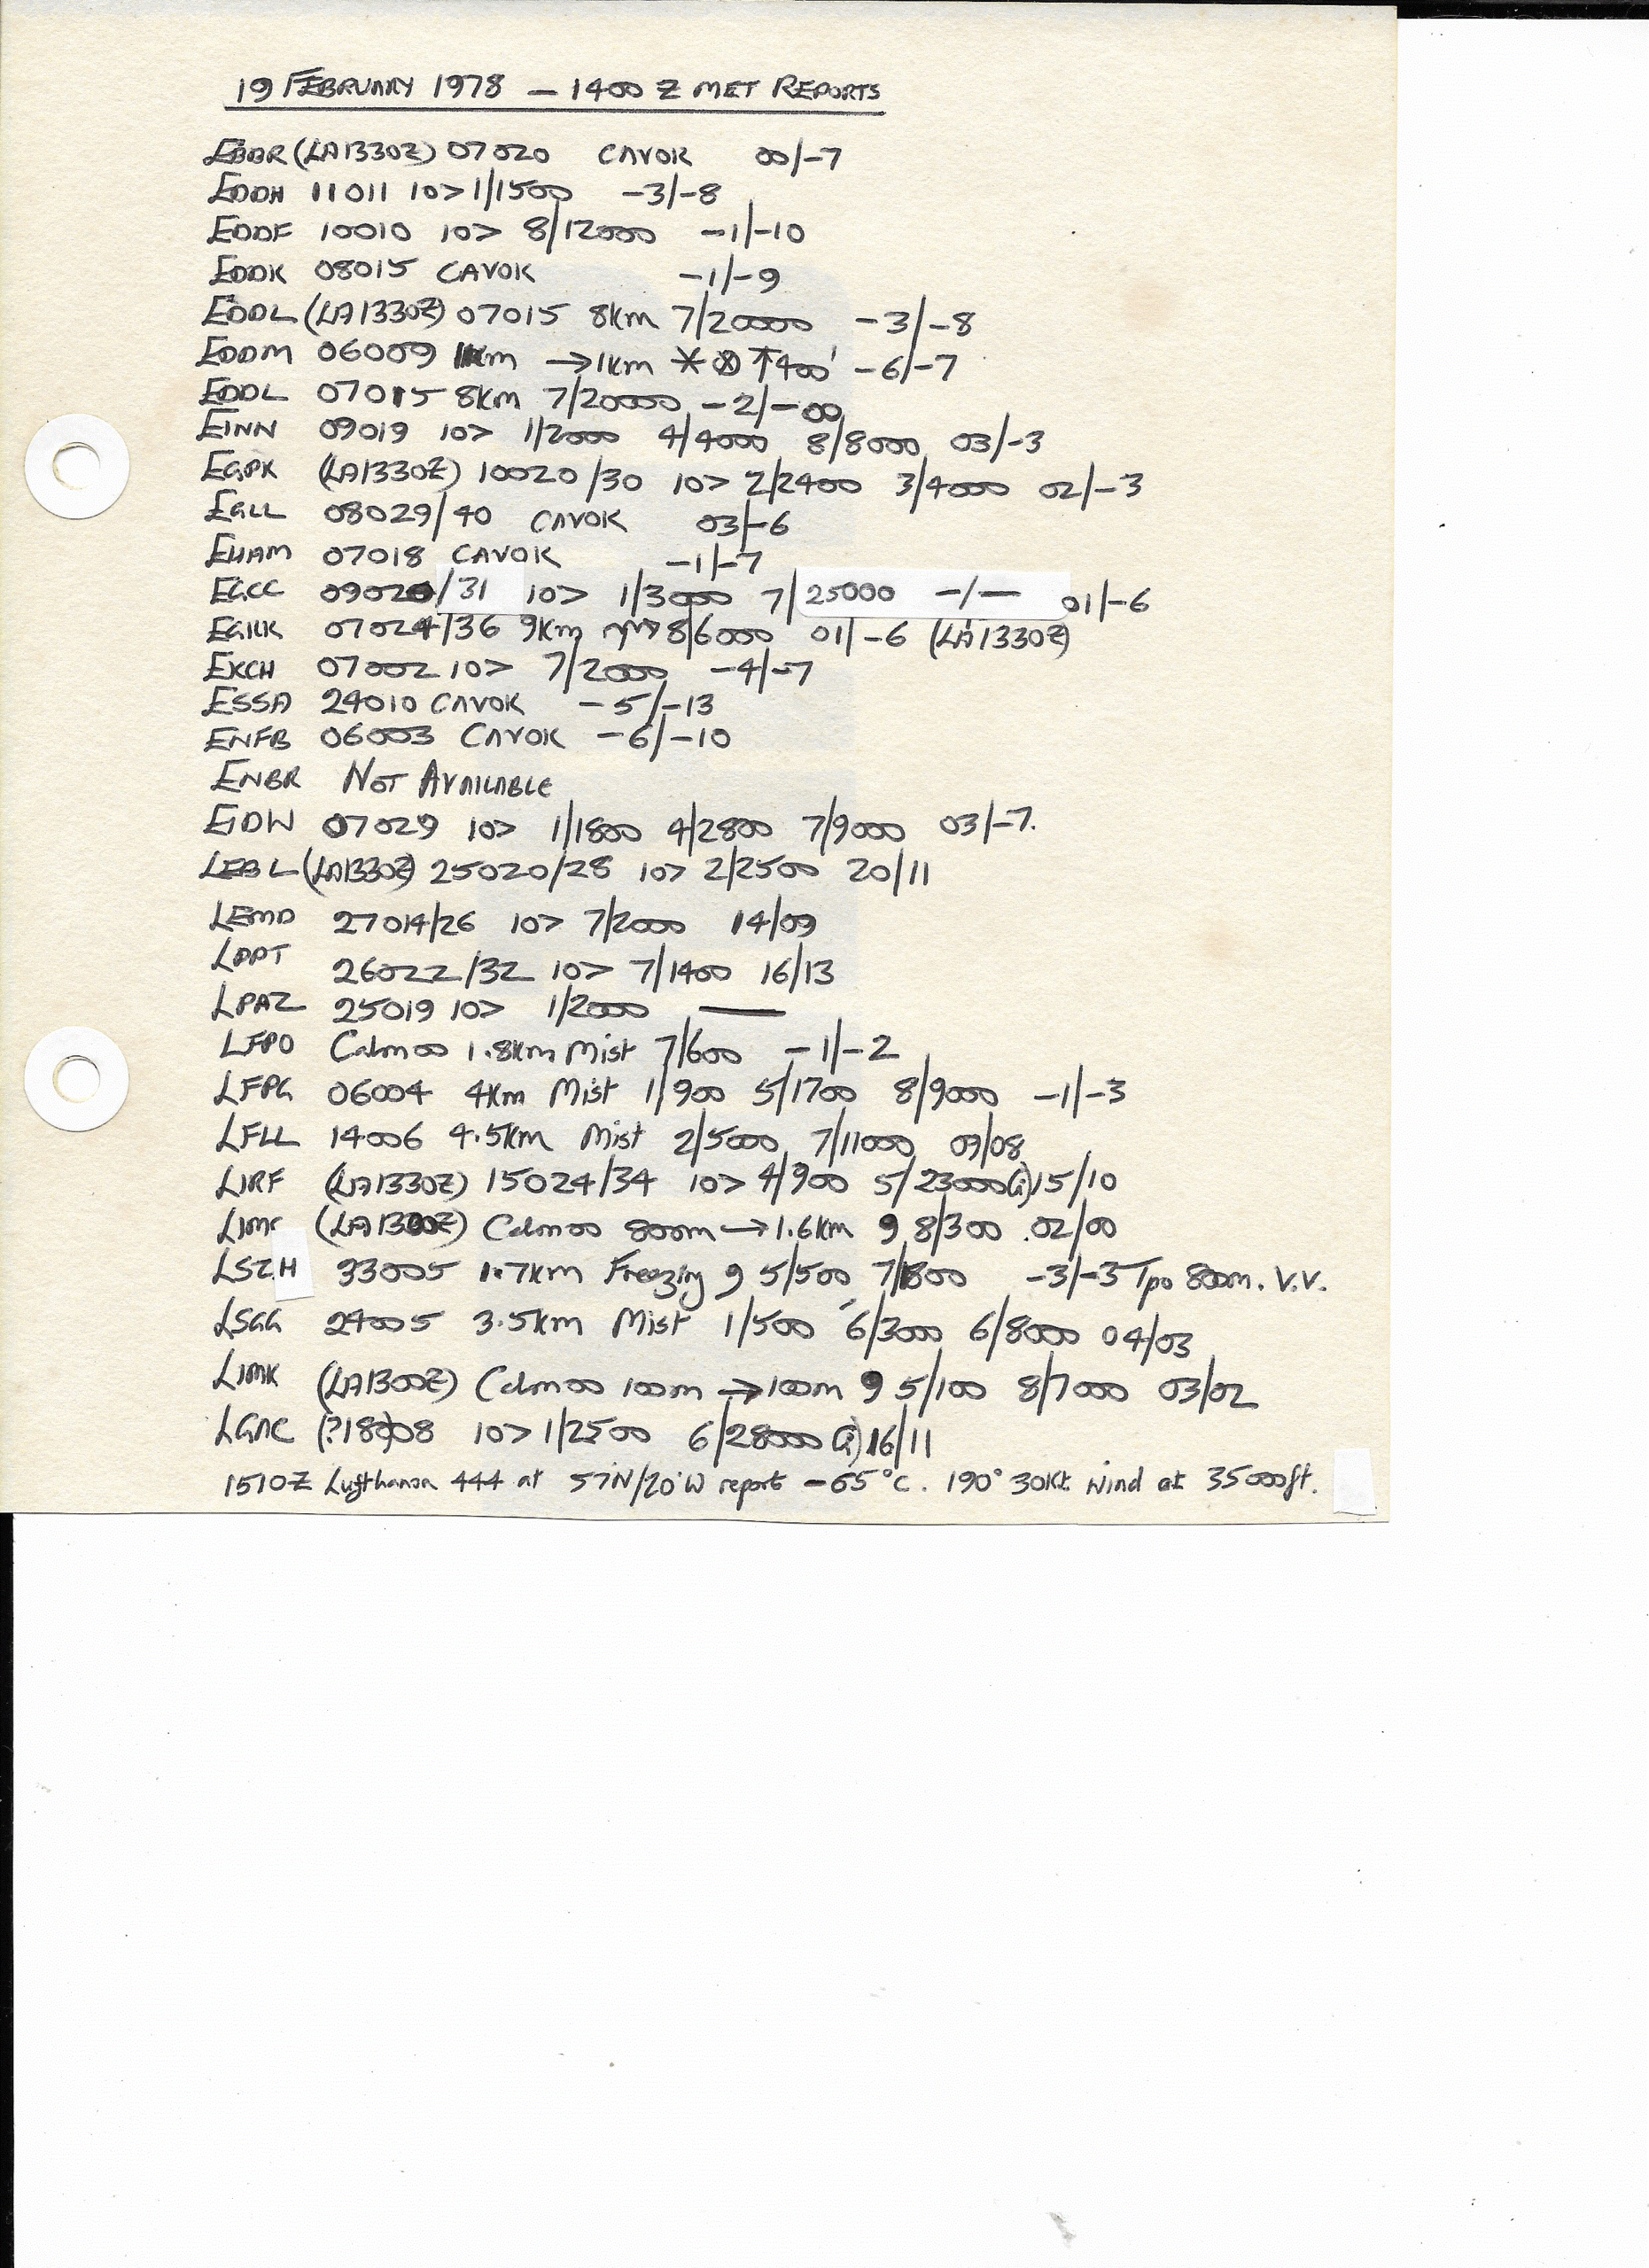 19 FEBRUARY 1978 — 1400 Z MET REPORTS
EBBR (LA1330Z) 07020 CAVOK 00/-7
EDDH 11011 10> 1/1500 -3/-8
EDDF 10010 10> 8/12000 -1/-10
EDDK 08015 CAVOK -1/-9
EDDL (LA1330Z) 07015 8km 7/20000 -3/-8
EDDM 06009 1km →1km * ↑400' -6/-7
EDDL 07015 8km 7/20000 -2/-00
EINN 09019 10> 1/2000 4/4000 8/8000 03/-3
EGPK (LA1330Z) 10020/30 10> 2/2400 3/4000 02/-3
EGLL 08029/40 CAVOK 03/-6
EHAM 07018 CAVOK -1/-7
EGCC 09020/31 10> 1/3000 7/25000 -/— 01/-6
EGKK 07024/36 9km 8/6000 01/-6 (LA1330Z)
EKCH 07002 10> 7/2000 -4/-7
ESSA 24010 CAVOK -5/-13
ENFB 06003 CAVOK -6/-10
ENBR NOT AVAILABLE
EIDW 07029 10> 1/1800 4/2800 7/9000 03/-7.
LEBL (LA1330Z) 25020/28 10> 2/2500 20/11
LEMD 27014/26 10> 7/2000 14/09
LPPT 26022/32 10> 7/1400 16/13
LPAZ 25019 10> 1/2000 —
LFPO Calm 00 1.8km Mist 7/600 -1/-2
LFPG 06004 4km Mist 1/900 5/1700 8/9000 -1/-3
LFLL 14006 4.5km Mist 2/5000 7/11000 09/08
LIRF (LA1330Z) 15024/34 10> 4/900 5/23000 15/10
LIMC (LA1300Z) Calm 00 800m →1.6km 9 8/300 02/00
LSZH 33005 1.7km Freezing 9 5/500 7/1800 -3/-3 Tpo 800m. V.V.
LSGG 24005 3.5km Mist 1/500 6/3000 6/8000 04/03
LIMK (LA1300Z) Calm 00 100m →100m 9 5/100 8/7000 03/02
LGAC (?18008 10> 1/2500 6/28000 16/11
1510Z Lufthansa 444 at 57°N/20°W report -65°C. 190° 30Kt Wind at 35000ft.